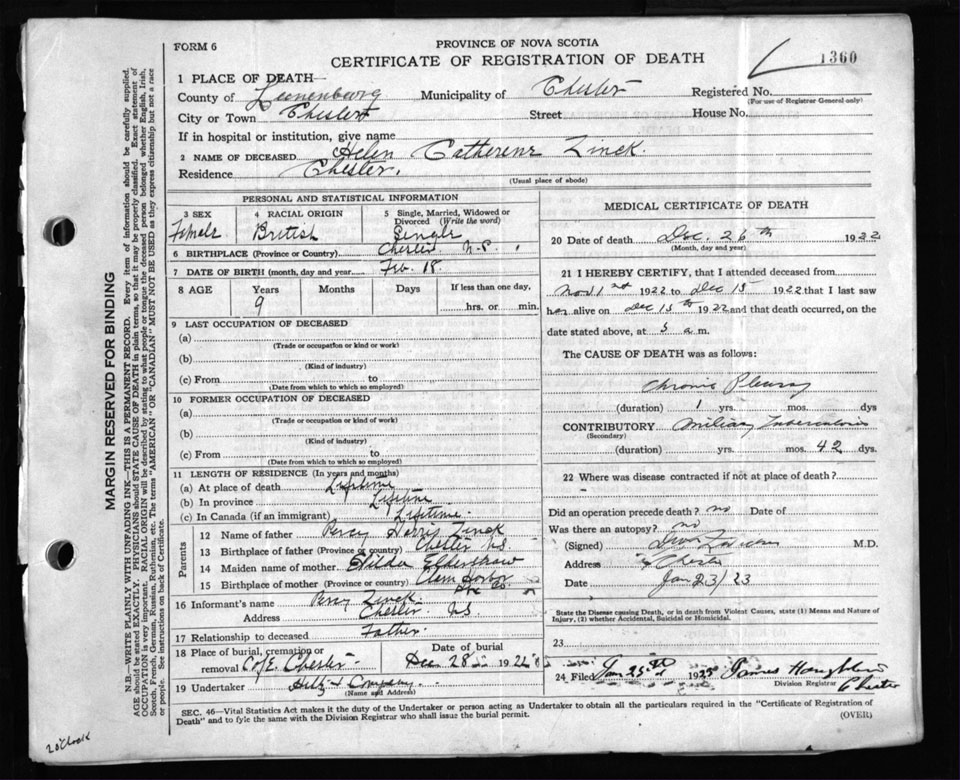 FORM 6
PROVINCE OF NOVA SCOTIA
CERTIFICATE OF REGISTRATION OF DEATH
1360
1 PLACE OF DEATH—
County of Lunenburg Municipality of Chester Registered No.
(For use of Registrar General only)
City or Town Chester Street House No.
If in hospital or institution, give name
2 NAME OF DECEASED Helen Catherene Zinck.
Residence Chester.
(Usual place of abode)
PERSONAL AND STATISTICAL INFORMATION
3 SEX 4 RACIAL ORIGIN 5 Single, Married, Widowed or Divorced (Write the word)
Female British Single
6 BIRTHPLACE (Province or Country) Chester N.S.
7 DATE OF BIRTH (month, day and year) Feb. 18.
8 AGE Years Months Days If less than one day,
9 hrs. or min.
9 LAST OCCUPATION OF DECEASED
(a)
(Trade or occupation or kind or work)
(b)
(Kind of industry)
(c) From to
(Date from which to which so employed)
10 FORMER OCCUPATION OF DECEASED
(a)
(Trade or occupation or kind of work)
(b)
(Kind of industry)
(c) From to
(Date from which to which so employed)
11 LENGTH OF RESIDENCE (In years and months)
(a) At place of death Lifetime
(b) In province Lifetime
(c) In Canada (if an immigrant) Lifetime
Parents
12 Name of father Percy Harris Zinck
13 Birthplace of father (Province or country) Chester N.S.
14 Maiden name of mother Hilda
15 Birthplace of mother (Province or country)
16 Informant's name Percy Zinck.
Address Chester N.S.
17 Relationship to deceased Father.
18 Place of burial, cremation or removal C of E. Chester Date of burial Dec 28 1922
19 Undertaker Hiltz & Company
(Name and Address)
MEDICAL CERTIFICATE OF DEATH
20 Date of death Dec. 26th 1922
(Month, day and year)
21 I HEREBY CERTIFY, that I attended deceased from
Nov 1st 1922 to Dec 15 1922 that I last saw
her alive on Dec 15th 1922 and that death occurred, on the
date stated above, at 5 a.m.
The CAUSE OF DEATH was as follows:
Chronic Pleurisy
(duration) 1 yrs. mos. dys
CONTRIBUTORY Miliary Tuberculosis
(Secondary)
(duration) yrs. mos. 42 dys.
22 Where was disease contracted if not at place of death?
Did an operation precede death? no Date of
Was there an autopsy? no
(Signed) M.D.
Address Chester
Date Jan 23/23
State the Disease causing Death, or in death from Violent Causes, state (1) Means and Nature of
Injury, (2) whether Accidental, Suicidal or Homicidal.
23
24 Filed Jan 25th 1923 James
Division Registrar
Chester
SEC. 46—Vital Statistics Act makes it the duty of the Undertaker or person acting as Undertaker to obtain all the particulars required in the "Certificate of Registration of
Death" and to fyle the same with the Division Registrar who shall issue the burial permit.
(OVER)
MARGIN RESERVED FOR BINDING
N.B.—WRITE PLAINLY WITH UNFADING INK—THIS IS A PERMANENT RECORD. Every item of information should be carefully supplied.
AGE should be stated EXACTLY. PHYSICIANS should STATE CAUSE OF DEATH in plain terms, so that it may be properly classified. Exact statement of
OCCUPATION is very important. RACIAL ORIGIN will be described by stating to what people or tongue the deceased person belonged whether English, Irish,
Scotch, French, German, Russian, Ruthenian, etc. The terms "AMERICAN" or "CANADIAN" MUST NOT BE USED as they express citizenship but not a race
or people. See instructions on back of Certificate.
2 o'clock